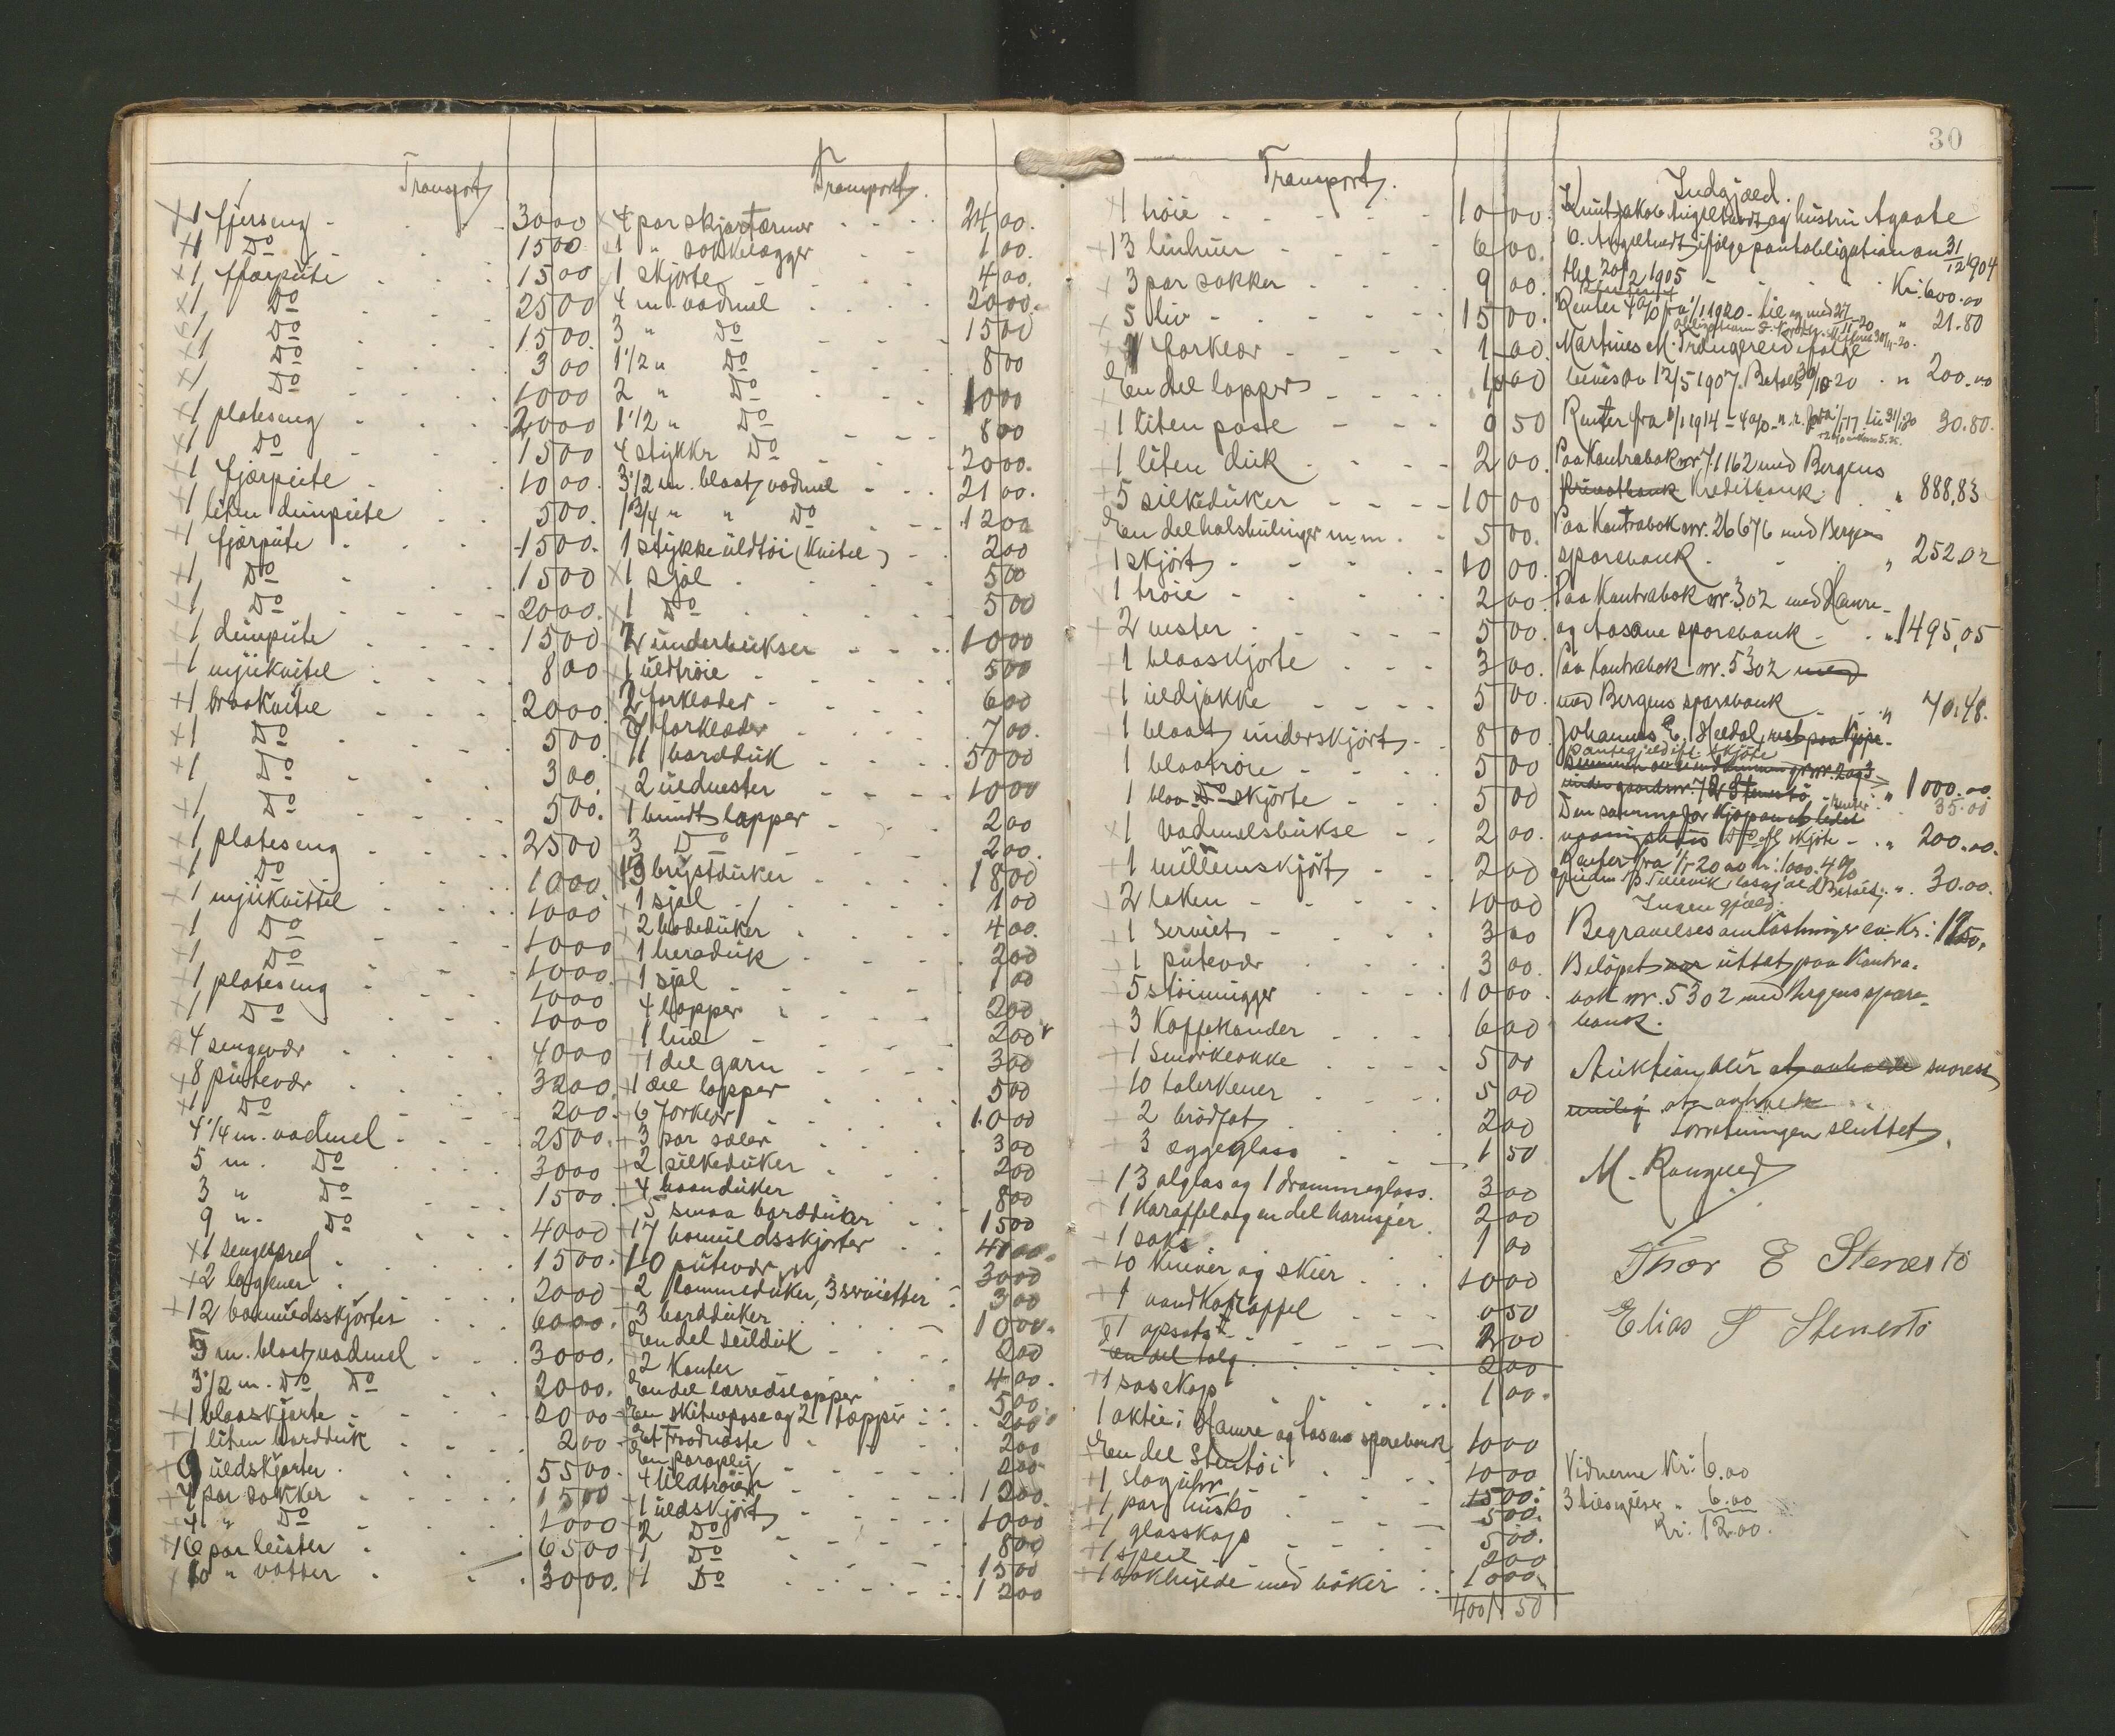 Transport
1 fjerseng - 30 00
1 Do 15 00
1 fjærpute 15 00
1 Do 25 00
1 Do 15 00
1 Do 3 00
1 Do 10 00
1 plateseng 20 00
1 Do 15 00
1 fjærpute 10 00
1 liten dunpute 5 00
1 fjærpute 15 00
1 Do 15 00
1 Do 20 00
1 dunpute 15 00
1 mjukvitel 8 00
1 braakvitel 20 00
1 Do 5 00
1 Do 3 00
1 Do 5 00
1 plateseng 25 00
1 Do 10 00
1 mjukvittel 10 00
1 Do 10 00
1 Do 10 00
1 plateseng 10 00
1 Do 10 00
4 sengevær 40 00
8 putevær 32 00
1 Do 2 00
4 1/4 m. vadmel 25 00
5 m. Do 30 00
3 " Do 15 00
9 " Do 40 00
1 sengespred 15 00
2 lagkner 20 00
12 bomuldsskjorter 60 00
5 m. blaat vadmel 30 00
3 1/2 m. Do Do 20 00
1 blaaskjorte 20 00
1 liten bordduk 2 00
9 uldskjorter 55 00
7 par sokker 15 00
4 " Do 10 00
16 par leister 65 00
10 " votter 30 00
Transport
4 par skjortærmer 24 00
1 " sokkelægger 1 00
1 skjorte 4 00
4 m. vadmel 20 00
3 " Do 15 00
1 1/2 " Do 8 00
2 " Do 10 00
1 1/2 " Do 8 00
4 stykker Do 20 00
3 1/2 m. blaat vadmel 21 00
1 3/4 " " Do 12 00
1 stykke uldtøi (Kvitel) 2 00
1 sjal 5 00
1 Do 5 00
2 underbukser 10 00
1 uldtrøie 5 00
2 forklæder 6 00
7 forklæder 7 00
11 borddük 50 00
2 uldvester 10 00
1 bundt lapper 2 00
3 Do 2 00
13 brystdüker 18 00
1 sjal 1 00
2 hodedüker 4 00
1 hersdük 2 00
1 sjal 1 00
4 lapper 2 00
1 hue 2 00
1 del garn 3 00
1 del lapper 5 00
6 forklær 10 00
3 par saaler 3 00
2 silkedüker 2 00
4 haandüker 8 00
5 smaa borddüker 15 00
17 bomuldsskjorter 41 00
10 putevær 30 00
2 lommedüker, 3 servietter 3 00
3 borddüker 10 00
En del seildük 2 00
2 Kanter 4 00
En del lærredslapper 5 00
En skitnepose og 21 tøpper 2 00
Et Traadnøste 2 00
En paraply 2 00
4 uldtrøier 12 00
1 uldskjørt 10 00
2 Do 8 00
1 Do 15 00
1 Do 12 00
30
Transport
1 trøie 10 00
13 linhuer 6 00
3 par sokker 9 00
5 liv 15 00
1 forklær 1 00
En del lapper 1 00
1 liten pose 0 50
1 liten duk 2 00
5 silkedüker 10 00
En del halsbulinger m.m. 5 00
1 skjørt 10 00
1 trøie 2 00
2 vester 5 00
1 blaaskjorte 3 00
1 uldjakke 5 00
1 blaat underskjørt 8 00
1 blaatrøie 5 00
1 blaa Do skjorte 5 00
1 vadmelsbukse 2 00
1 mellemskjørt 2 00
2 laken 10 00
1 serviet 3 00
1 putevær 3 00
5 støimugger 10 00
3 Kaffekander 6 00
1 Smørklokke 5 00
10 talerkener 5 00
2 brødfat 2 00
3 æggeglass 1 50
13 ølglas og 1 drammeglass. 3 00
1 Karaffel og en del kornsjer 2 00
1 saks 1 00
10 kniver og skier 10 00
1 vandkaraffel 0 50
1 opsats 2 00
en del talg 2 00
1 soveskap 1 00
1 aktie i Hamre og Aasane sparebank 10 00
En del Stentøi 10 00
1 slaguhr 15 00
1 par lüsko 5 00
1 glasskap 5 00
1 speil 2 00
1 bokhylde med bøker 10 00
4001 50
Indgjæld.
Knut Jakob Angeltvedt og hustru Agaate
O. Angeltvedt ifølge pantobligation av 31/12 1904
thl 20/2 1905 Kr. 600.00
Renter 4 % fra 1/1 1920 - til og med 27/11-20 " 21.80
Martines M. Trængereid ifølge
bevis av 12/5 1907. Betalt 30/10-20 " 200.00
Renter fra 1/1 1914 - 4 % 30.80.
Paa Kontrabok nr. 71162 med Bergens
Privatbank Kreditbank. " 888,83
Paa Kontrabok nr. 26676 med Bergens
sparebank " 252.02
Paa Kontrabok nr. 302 med Hamre
og Aasane sparebank " 1495,05
Paa Kontrabok nr. 5302 med
med Bergens sparebank " 70.48.
Johannes E. Heldal, rest paa Kjøpe-
pantegjeld ifl. skjøte
under gaardsnr. 72 Stenestø " 1000.00
renter 35.00
Den samme for kjøp av et lidet
Do ifl skjøte " 200.00.
Renter fra 1/1-20 av kr: 1000. 4 % " 30.00.
Ingen gjæld.
Begravelsesomkostninger ca. Kr: 1250,
Beløpet var uttat paa Kontra-
bok nr. 5302 med Bergens spare-
bank.
Auktion blir at anholde snarest
mulig at avholde
Forretningen sluttet.
M. Rongved
Thor E Stenestø
Elias T Stenestø
Vidnerne Kr: 6.00
3 tilsigelser " 6.00
Kr: 12.00.